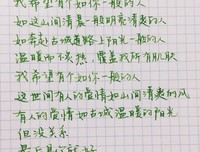 我希望有个如你一般的人
如这山间清晨一般明亮清爽的人
如奔赴古城道路上阳光一般的人
温暖而不炙热，覆盖我所有肌肤
我希望有个如你一般的人
这世间有人的爱情如山间清爽的风
有人的爱情如古城温暖的阳光
但没关系
最后是你就好